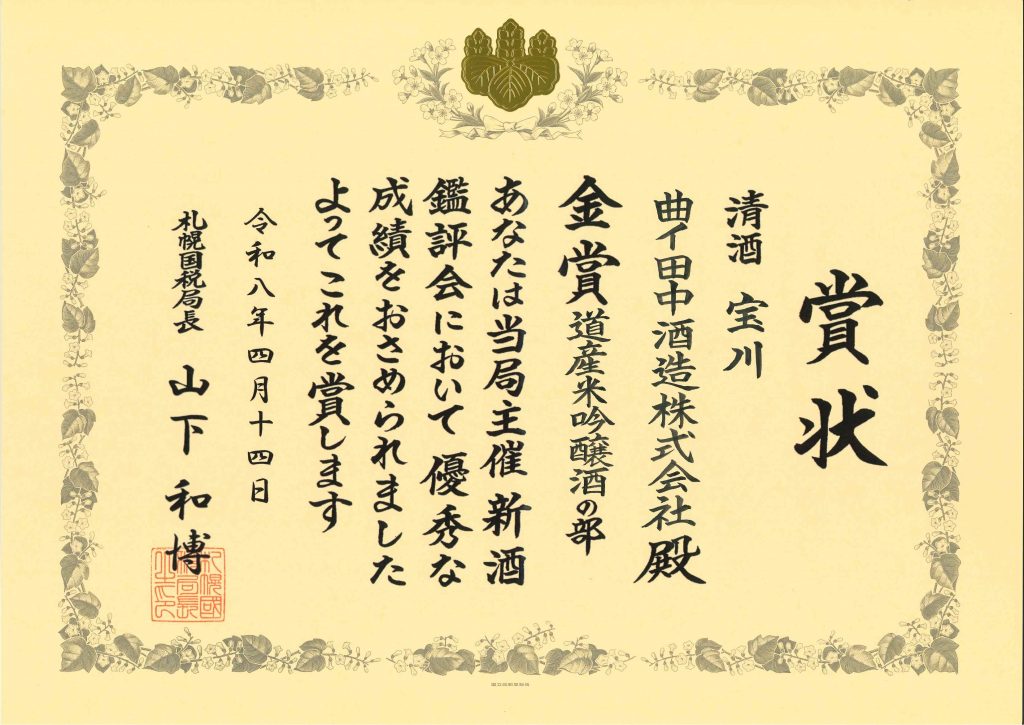 賞状
清酒 宝川
曲イ田中酒造株式会社殿
金賞道産米吟醸酒の部
あなたは当局主催新酒
鑑評会において優秀な
成績をおさめられました
よってこれを賞します
令和八年四月十四日
札幌国税局長 山下和博